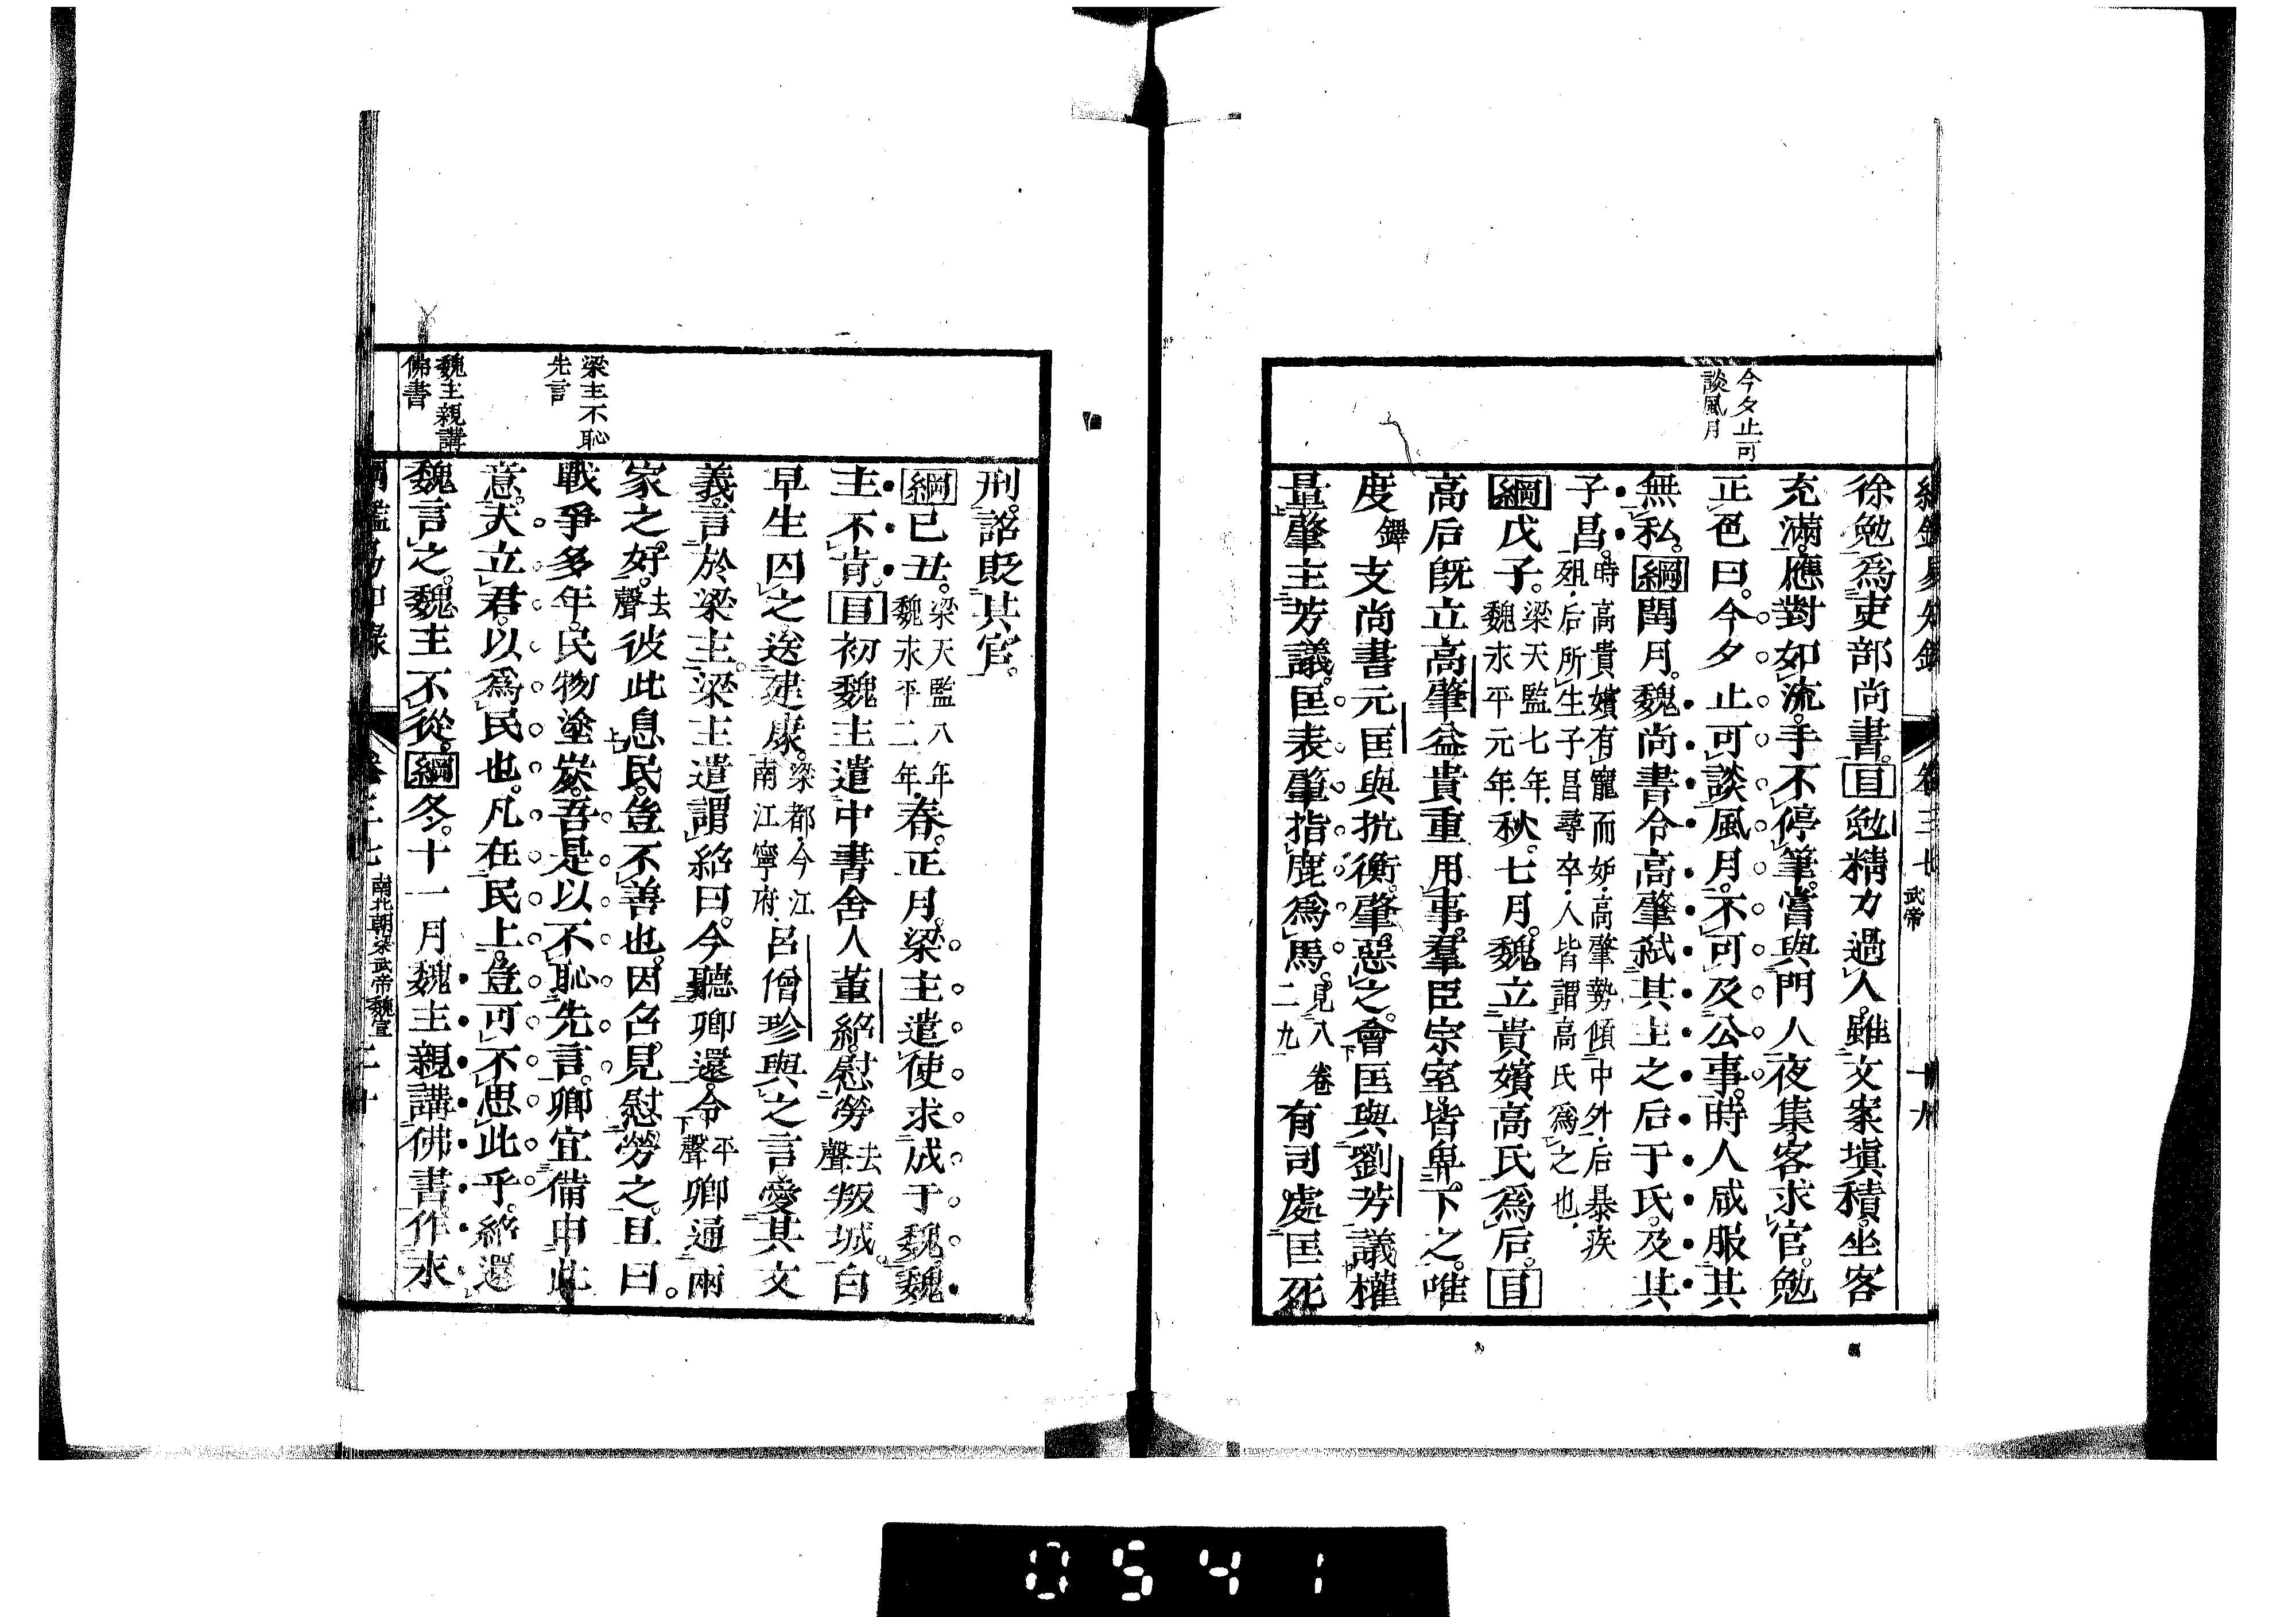 今夕止可
談風月
徐勉爲吏部尚書。目勉精力過人。雖文案塡積。坐客
充滿。應對如流。手不停筆。嘗與門人夜集。客求官。勉
正色曰。今夕止可談風月。不可及公事。時人咸服其
無私。綱閏月。魏尚書令高肇弑其主之后于氏。及其
子昌。時高貴嬪有寵而妒。高肇勢傾中外。后暴疾
殂。后所生子昌尋卒。人皆謂高氏爲之也。
綱戊子。梁天監七年。魏永平元年。秋。七月。魏立貴嬪高氏爲后。目
高后旣立。高肇益貴重用事。羣臣宗室。皆卑下之。唯
度支尚書元匡與抗衡。肇惡之。會匡與劉芳議權
量。肇主芳議。匡表肇指鹿爲馬。見八卷二九有司處匡死
武帝
十九
梁主不恥
先言
魏主親講
佛書
刑。詔貶其官。
綱己丑。梁天監八年魏永平二年。春。正月。梁主遣使求成于魏。魏
主不肯。目初魏主遣中書舍人董紹。慰勞去聲叛城。白
早生囚之。送建康。梁都。今江南江寧府。呂僧珍與之言。愛其文
義。言於梁主。梁主遣謂紹曰。今聽卿還。令平聲卿通兩
家之好。去聲彼此息民。豈不善也。因召見慰勞之。且曰。
戰爭多年。民物塗炭。吾是以不恥先言。卿宜備申此
意。天立君。以爲民也。凡在民上。豈可不思此乎。紹還
魏言之。魏主不從。綱冬。十一月魏主親講佛書。作永
南北朝梁武帝魏宣
0541